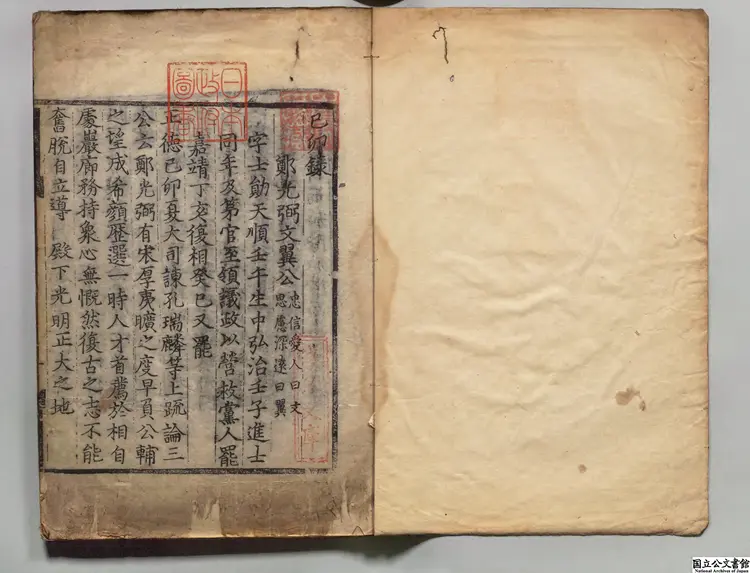 己卯錄
鄭光弼文翼公 忠信愛人曰文 思慮深遠曰翼
字士勛天順壬午生中弘治壬子進士
同年及第官至領議政以營救黨人罷
嘉靖丁亥復相癸巳又罷
正德己卯夏大司諫孔瑞麟等上疏論三
公云鄭光弼有宋厚夷曠之度早負公輔
之望成希顔歷選一時人才首薦於相自
處巖廊務持衆心無慨然復古之志不能
奮脫自立導 殿下光明正大之地
日本
政府
圖書
国立公文書館
National Archives of Japan